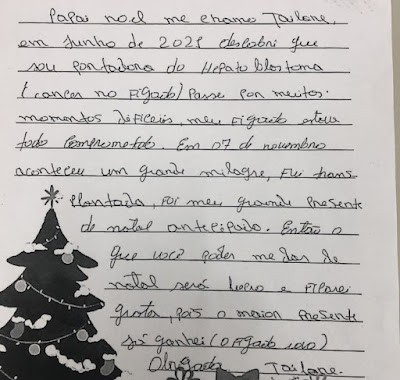 Papai noel me chamo Tailane,
em Junho de 2021 descobri que
sou portadora do Hepatoblastoma
(cancer no Figado) Passei por muitos
momentos dificeis, meu Figado estava
todo comprometido. Em 07 de novembro
aconteceu um grande milagre, Fui trans-
plantada, Foi meu grande Presente
de natal antecipado. Então o
que você poder me dar de
natal será lucro e Ficarei
grata, pois o maior Presente
já ganhei (o Figado novo)
Obrigada Tailane.